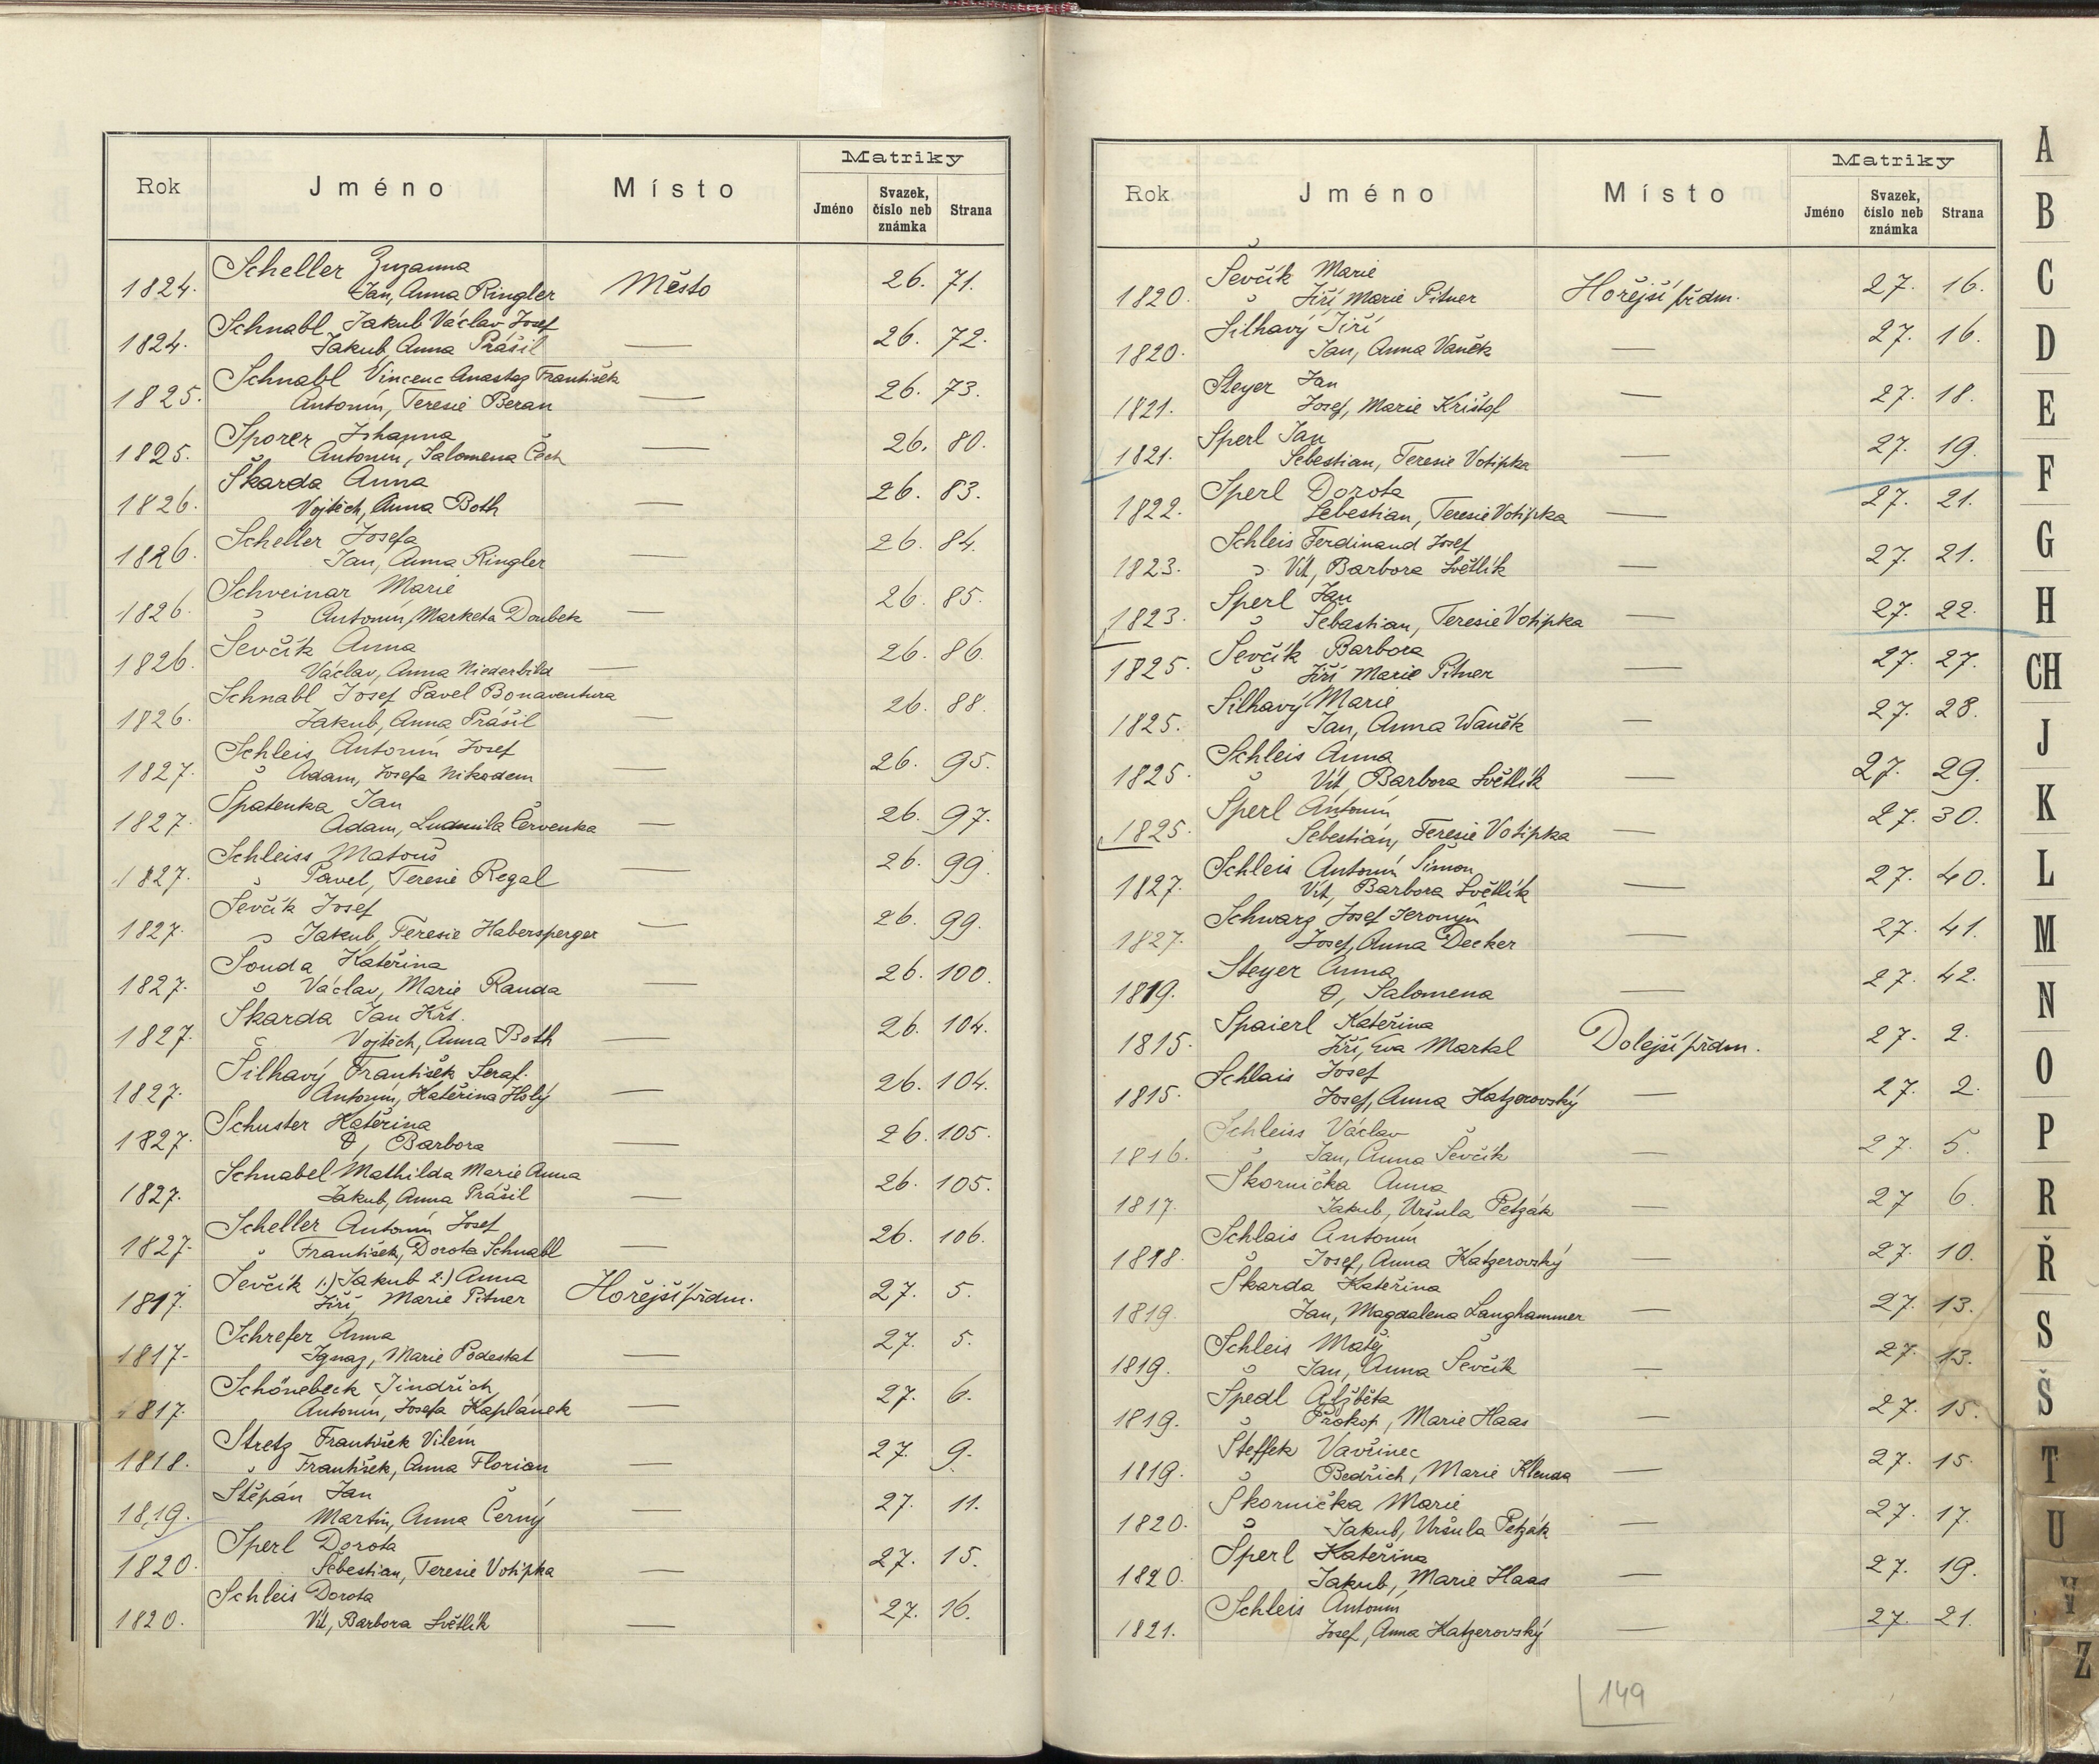 Matriky
Rok Jméno Místo Jméno Svazek, číslo neb známka Strana
Scheller Zuzanna
1824. Jan, Anna Ringler Město 26. 71.
Schnabl Jakub Václav Josef
1824. Jakub, Anna Prášil — 26. 72.
Schnabl Vincenc Anastaz František
1825. Antonín, Teresie Beran — 26. 73.
Sporer Johanna
1825. Antonín, Salomena Čech — 26. 80.
Škarda Anna
1826. Vojtěch, Anna Both — 26. 83.
Scheller Josefa
1826. Jan, Anna Ringler — 26. 84.
Schveinar Marie
1826. Antonín, Marketa Doubek — 26. 85.
Ševčík Anna
1826. Václav, Anna Niederbild — 26. 86.
Schnabl Josef Pavel Bonaventura
1826. Jakub, Anna Prášil — 26. 88.
Schleis Antonín Josef
1827. Adam, Josefa Nikodem — 26. 95.
Špatenka Jan
1827. Adam, Ludmila Červenka — 26. 97.
Schleiss Matouš
1827. Pavel, Teresie Regal — 26. 99.
Ševčík Josef
1827. Jakub, Teresie Habersperger — 26. 99.
Souda Kateřina
1827. Václav, Marie Randa — 26. 100.
Škarda Jan Křt.
1827. Vojtěch, Anna Both — 26. 104.
Šilhavý František Seraf.
1827. Antonín, Kateřina Holý — 26. 104.
Schuster Kateřina
1827. O, Barbora — 26. 105.
Schnabel Mathilda Marie Anna
1827. Jakub, Anna Prášil — 26. 105.
Scheller Antonín Josef
1827. František, Dorota Schnabl — 26. 106.
Ševčík 1.) Jakub 2.) Anna
1817. Jiří, Marie Pitner Hořejší předm. 27. 5.
Schrefer Anna
1817. Ignaz, Marie Podestat — 27. 5.
Schönebeck Jindřich
1817. Antonín, Josefa Kaplánek — 27. 6.
Stretz František Vilém
1818. František, Anna Florian — 27. 9.
Štěpán Jan
1819. Martin, Anna Černý — 27. 11.
Sperl Dorota
1820. Šebestian, Teresie Votipka — 27. 15.
Schleis Dorota
1820. Vít, Barbora Světlík — 27. 16.
Matriky
Rok Jméno Místo Jméno Svazek, číslo neb známka Strana
Ševčík Marie
1820. Jiří Marie Pitner Hořejší předm. 27. 16.
Šilhavý Jiří
1820. Jan, Anna Vaněk — 27. 16.
Steyer Jan
1821. Josef, Marie Krištof — 27. 18.
Sperl Jan
1821. Šebestian, Teresie Votipka — 27. 19.
Sperl Dorota
1822. Šebestian, Teresie Votipka — 27. 21.
Schleis Ferdinand Josef
1823. Vít, Barbora Světlík — 27. 21.
Šperl Jan
1823. Šebastian, Teresie Votipka — 27. 22.
Ševčík Barbora
1825. Jiří Marie Pitner — 27. 27.
Šilhavý Marie
1825. Jan, Anna Waněk — 27. 28.
Schleis Anna
1825. Vít, Barbora Světlík — 27. 29.
Šperl Antonín
1825. Šebestián, Teresie Votipka — 27. 30.
Schleis Antonín Šimon
1827. Vít, Barbora Světlík — 27. 40.
Schwarz Josef Jeroným
1827. Josef, Anna Decker — 27. 41.
Steyer Anna
1819. O, Salomena — 27. 42.
Spaierl Kateřina
1815. Jiří, Eva Martal Dolejší předm. 27. 2.
Schlais Josef
1815. Josef, Anna Katzerovský — 27. 2.
Schleiss Václav
1816. Jan, Anna Ševčík — 27. 5.
Škornička Anna
1817. Jakub, Uršula Petzák — 27 6.
Schlais Antonín
1818. Josef, Anna Katzerovský — 27. 10.
Škarda Kateřina
1819. Jan, Magdalena Langhammer — 27. 13.
Schleis Matěj
1819. Jan, Anna Ševčík — 27. 13.
Špedl Alžběta
1819. Prokop, Marie Haas — 27. 15.
Šteffek Vavřinec
1819. Bedřich, Marie Klenda — 27. 15.
Škornička Marie
1820. Jakub, Uršula Petzák — 27. 17.
Šperl Kateřina
1820. Jakub, Marie Haas — 27. 19.
Schleis Antonín
1821. Josef, Anna Katzerovský — 27. 21.
149
A
B
C
D
E
F
G
H
CH
J
K
L
M
N
O
P
R
Ř
S
Š
T
U
V
Z